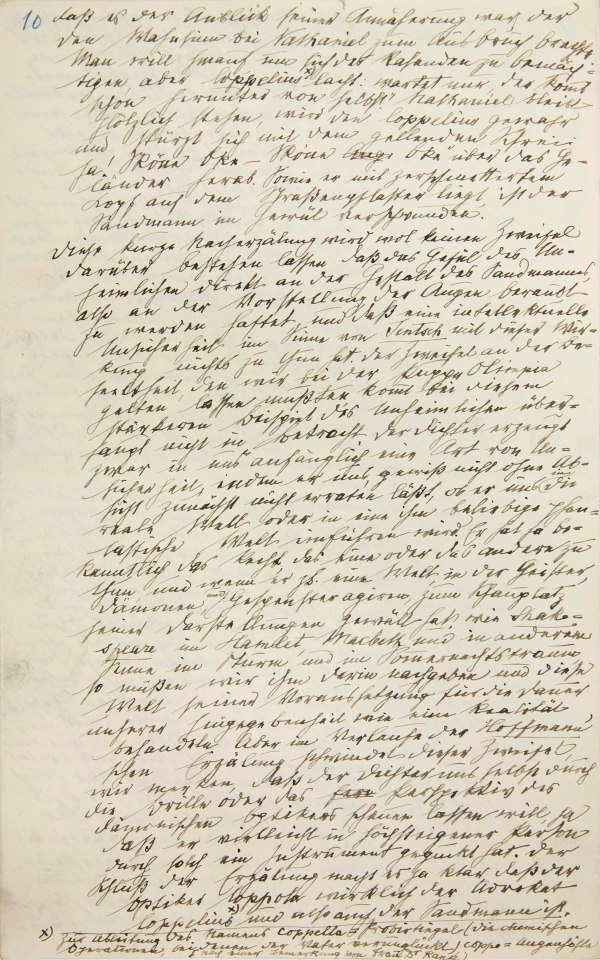 10
daß es der Anblick seiner Annäherung war, der
den Wahnsinn bei Nathaniel zum Ausbruch brachte.
Man will hinauf um sich des Rasenden zu bemäch-
tigen, aber Coppelius x) lacht: wartet nur, der komt
schon herunter von selbst. Nathaniel bleibt
plötzlich stehen, wird den Coppelius gewahr
und stürzt sich mit dem gellenden Schrei
Ja! Sköne Oke – Sköne Oke über das Ge-
länder herab. Sowie er mit zerschmettertem
Kopf auf dem Straßenpflaster liegt, ist der
Sandmann im Gewül verschwunden.
Diese kurze Nacherzälung wird wol keinen Zweifel
darüber bestehen lassen, daß das Gefül des Un-
heimlichen direkt an der Gestalt des Sandmannes,
also an der Vorstellung der Augen beraubt
zu werden haftet, und daß eine intellektuelle
Unsicherheit im Sinne von Jentsch mit dieser Wir-
kung nichts zu thun hat. Der Zweifel an der Be-
seeltheit, den wir bei der Puppe Olimpia
gelten lassen mußten komt bei diesem
stärkeren Beispiel des Unheimlichen über-
haupt nicht in Betracht. Der Dichter erzeugt
zwar in uns anfänglich eine Art von Un-
sicherheit, indem er uns, gewiß nicht ohne Ab-
sicht zunächst nicht erraten läßt, ob er uns in die
reale Welt oder in eine ihm beliebige phan-
tastische Welt einführen wird. Er hat ja be-
kanntlich das Recht, das eine oder das andere zu
thun und wenn er zb. eine Welt in der Geister,
Dämonen und Gespenster agiren, zum Schauplatz
seiner Darstellungen gewält hat, wie Shake-
speare im Hamlet, Macbeth und in anderem
Sinne im Sturm und im Somernachtstraum
so müßen wir ihm darin nachgeben und diese
Welt seiner Voraussetzung für die Dauer
unserer Hingegebenheit wie eine Realität
behandeln. Aber im Verlaufe der Hoffmann'
schen Erzälung schwindet dieser Zweifel,
wir merken, daß der Dichter uns selbst durch
die Brille oder das Perspektiv des
dämonischen Optikers schauen lassen will, ja
daß er vielleicht in höchsteigener Person
durch solch ein Instrument geguckt hat. Der
Schluß der Erzälung macht es ja klar, daß der
Optiker Coppola wirklich der Advokat
Coppelius x) und also auch der Sandmann ist.
x) Zur Ableitung des Namens Coppella = Probirtiegel (die chemischen
Operationen, bei denen der Vater verunglückt) coppo = Augenhöhle
nach einer Bemerkung von Frau Dr Rank